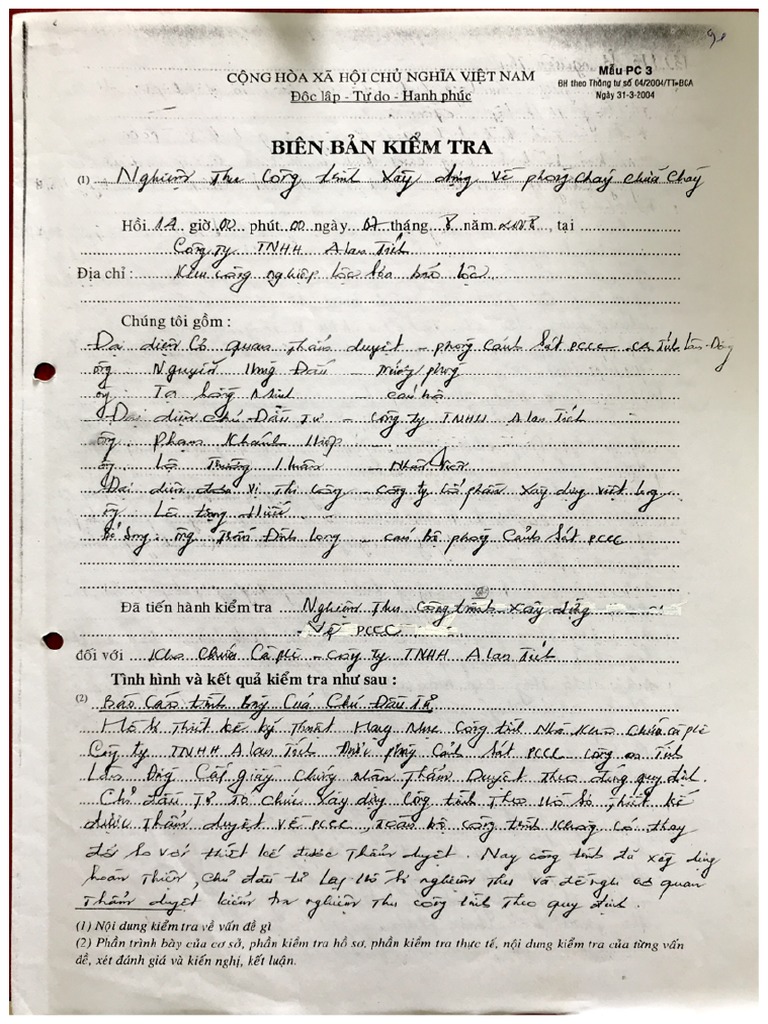 CỘNG HÒA XÃ HỘI CHỦ NGHĨA VIỆT NAM
Độc lập - Tự do - Hạnh phúc
Mẫu PC 3
BH theo Thông tư số 04/2004/TT-BCA
Ngày 31-3-2004
BIÊN BẢN KIỂM TRA
(1) Nghiệm Thu Công trình Xây dựng về phòng cháy chữa cháy
Hồi giờ 00 phút 00 ngày tháng 8 năm , tại
Công ty TNHH A Lan Tiết
Địa chỉ : Khu công nghiệp Lộc Sơn bảo lộc
Chúng tôi gồm :
- Đại diện Cơ quan thẩm duyệt - phòng Cảnh Sát PCCC - CA Tỉnh Lâm Đồng
ông Nguyễn - trưởng phòng
ông : Tạ Hồng Minh - cán bộ
- Đại diện chủ Đầu Tư - công ty TNHH A Lan Tiết
ông Phạm Khánh Hiệp
ông Thường - Nhân viên
- Đại diện đơn vị Thi công - công ty cổ phần xây dựng việt long
ông Lê
Bổ Sung : ông Trần Đình Long - cán bộ phòng Cảnh Sát PCCC
Đã tiến hành kiểm tra Nghiệm Thu công trình xây dựng
Về PCCC
đối với Kho Chứa Cà phê - công ty TNHH A Lan Tiết
Tình hình và kết quả kiểm tra như sau :
(2) Báo Cáo trình bày Của Chủ Đầu Tư
Hồ sơ Thiết kế kỹ Thuật Hạng Mục Công trình Nhà Kho Chứa cà phê
Công ty TNHH A Lan Tiết Được phòng Cảnh Sát PCCC công an Tỉnh
Lâm Đồng Cấp giấy chứng nhận Thẩm Duyệt Theo đúng quy định.
Chủ đầu Tư Tổ chức Xây dựng Công trình Theo Hồ Sơ, Thiết kế
được Thẩm duyệt về PCCC, Toàn bộ công trình không có thay
đổi so với thiết kế được Thẩm duyệt. Nay công trình đã xây dựng
hoàn Thiện, chủ đầu tư Lập Hồ sơ nghiệm thu và đề nghị cơ quan
Thẩm duyệt kiểm tra nghiệm thu công trình theo quy định.
(1) Nội dung kiểm tra về vấn đề gì
(2) Phần trình bày của cơ sở, phần kiểm tra hồ sơ, phần kiểm tra thực tế, nội dung kiểm tra của từng vấn
đề, xét đánh giá và kiến nghị, kết luận.